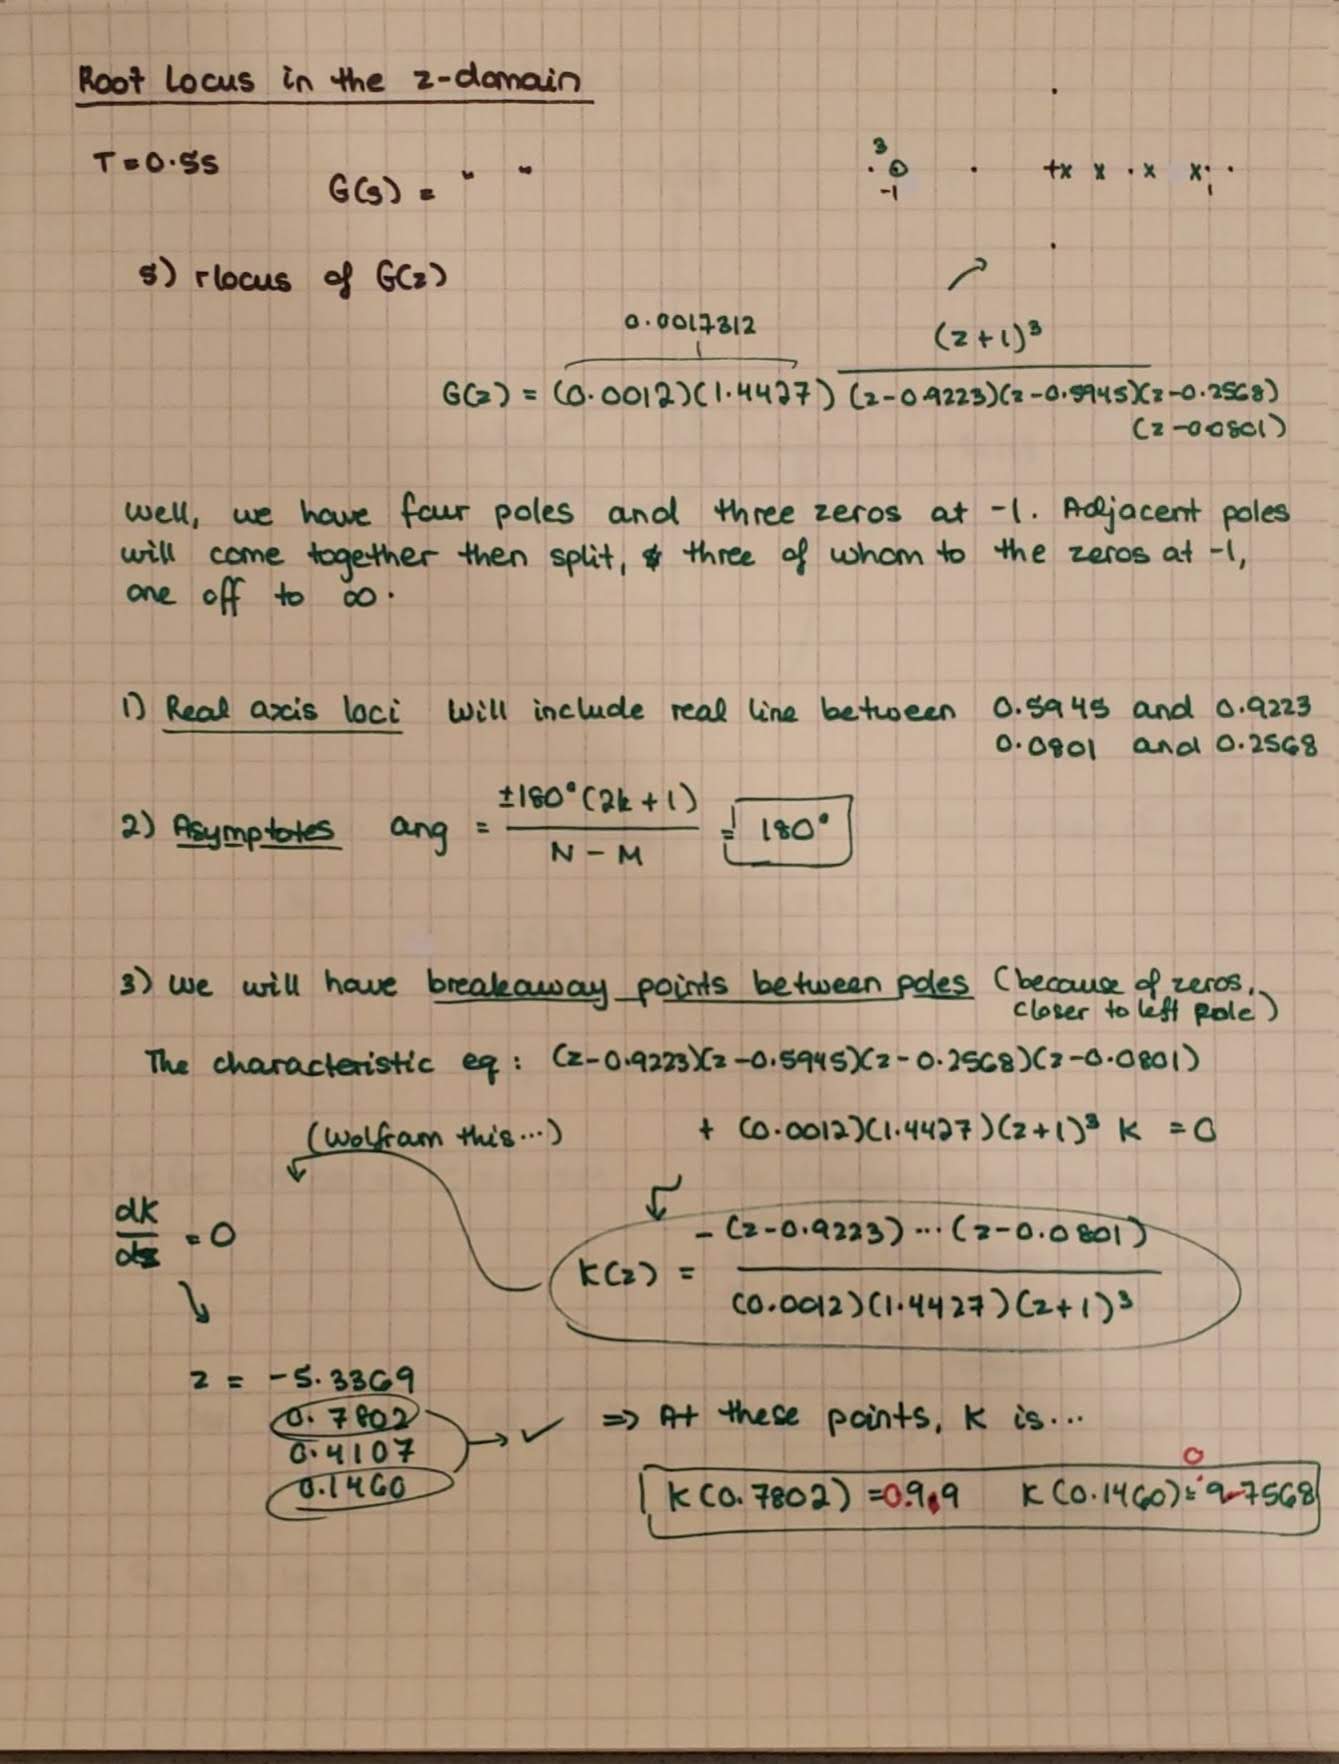 Root Locus in the z-domain
T = 0.5s
G(s) = " "
3
-1
+x x · x x
1
5) rlocus of G(z)
0.0017312
(z+1)³
G(z) = (0.0012)(1.4427) (z-0.9223)(z-0.5945)(z-0.2568)
(z-0.0801)
Well, we have four poles and three zeros at -1. Adjacent poles
will come together then split, three of whom to the zeros at -1,
one off to ∞.
1) Real axis loci Will include real line between 0.5945 and 0.9223
0.0801 and 0.2568
2) Asymptotes ang = ±180°(2k+1) / N - M = 180°
3) We will have breakaway points between poles (because of zeros,
closer to left pole)
The characteristic eq: (z-0.9223)(z-0.5945)(z-0.2568)(z-0.0801)
(Wolfram this...) + (0.0012)(1.4427)(z+1)³ K = 0
dK/dz = 0
K(z) = -(z-0.9223)...(z-0.0801) / (0.0012)(1.4427)(z+1)³
z = -5.3369
0.7802
0.4107
0.1460
✓ => At these points, K is...
K(0.7802) = 0.9.9 K(0.1460) = 0.7568